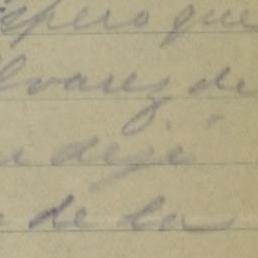 espero que
lvarez de
dejé
de la